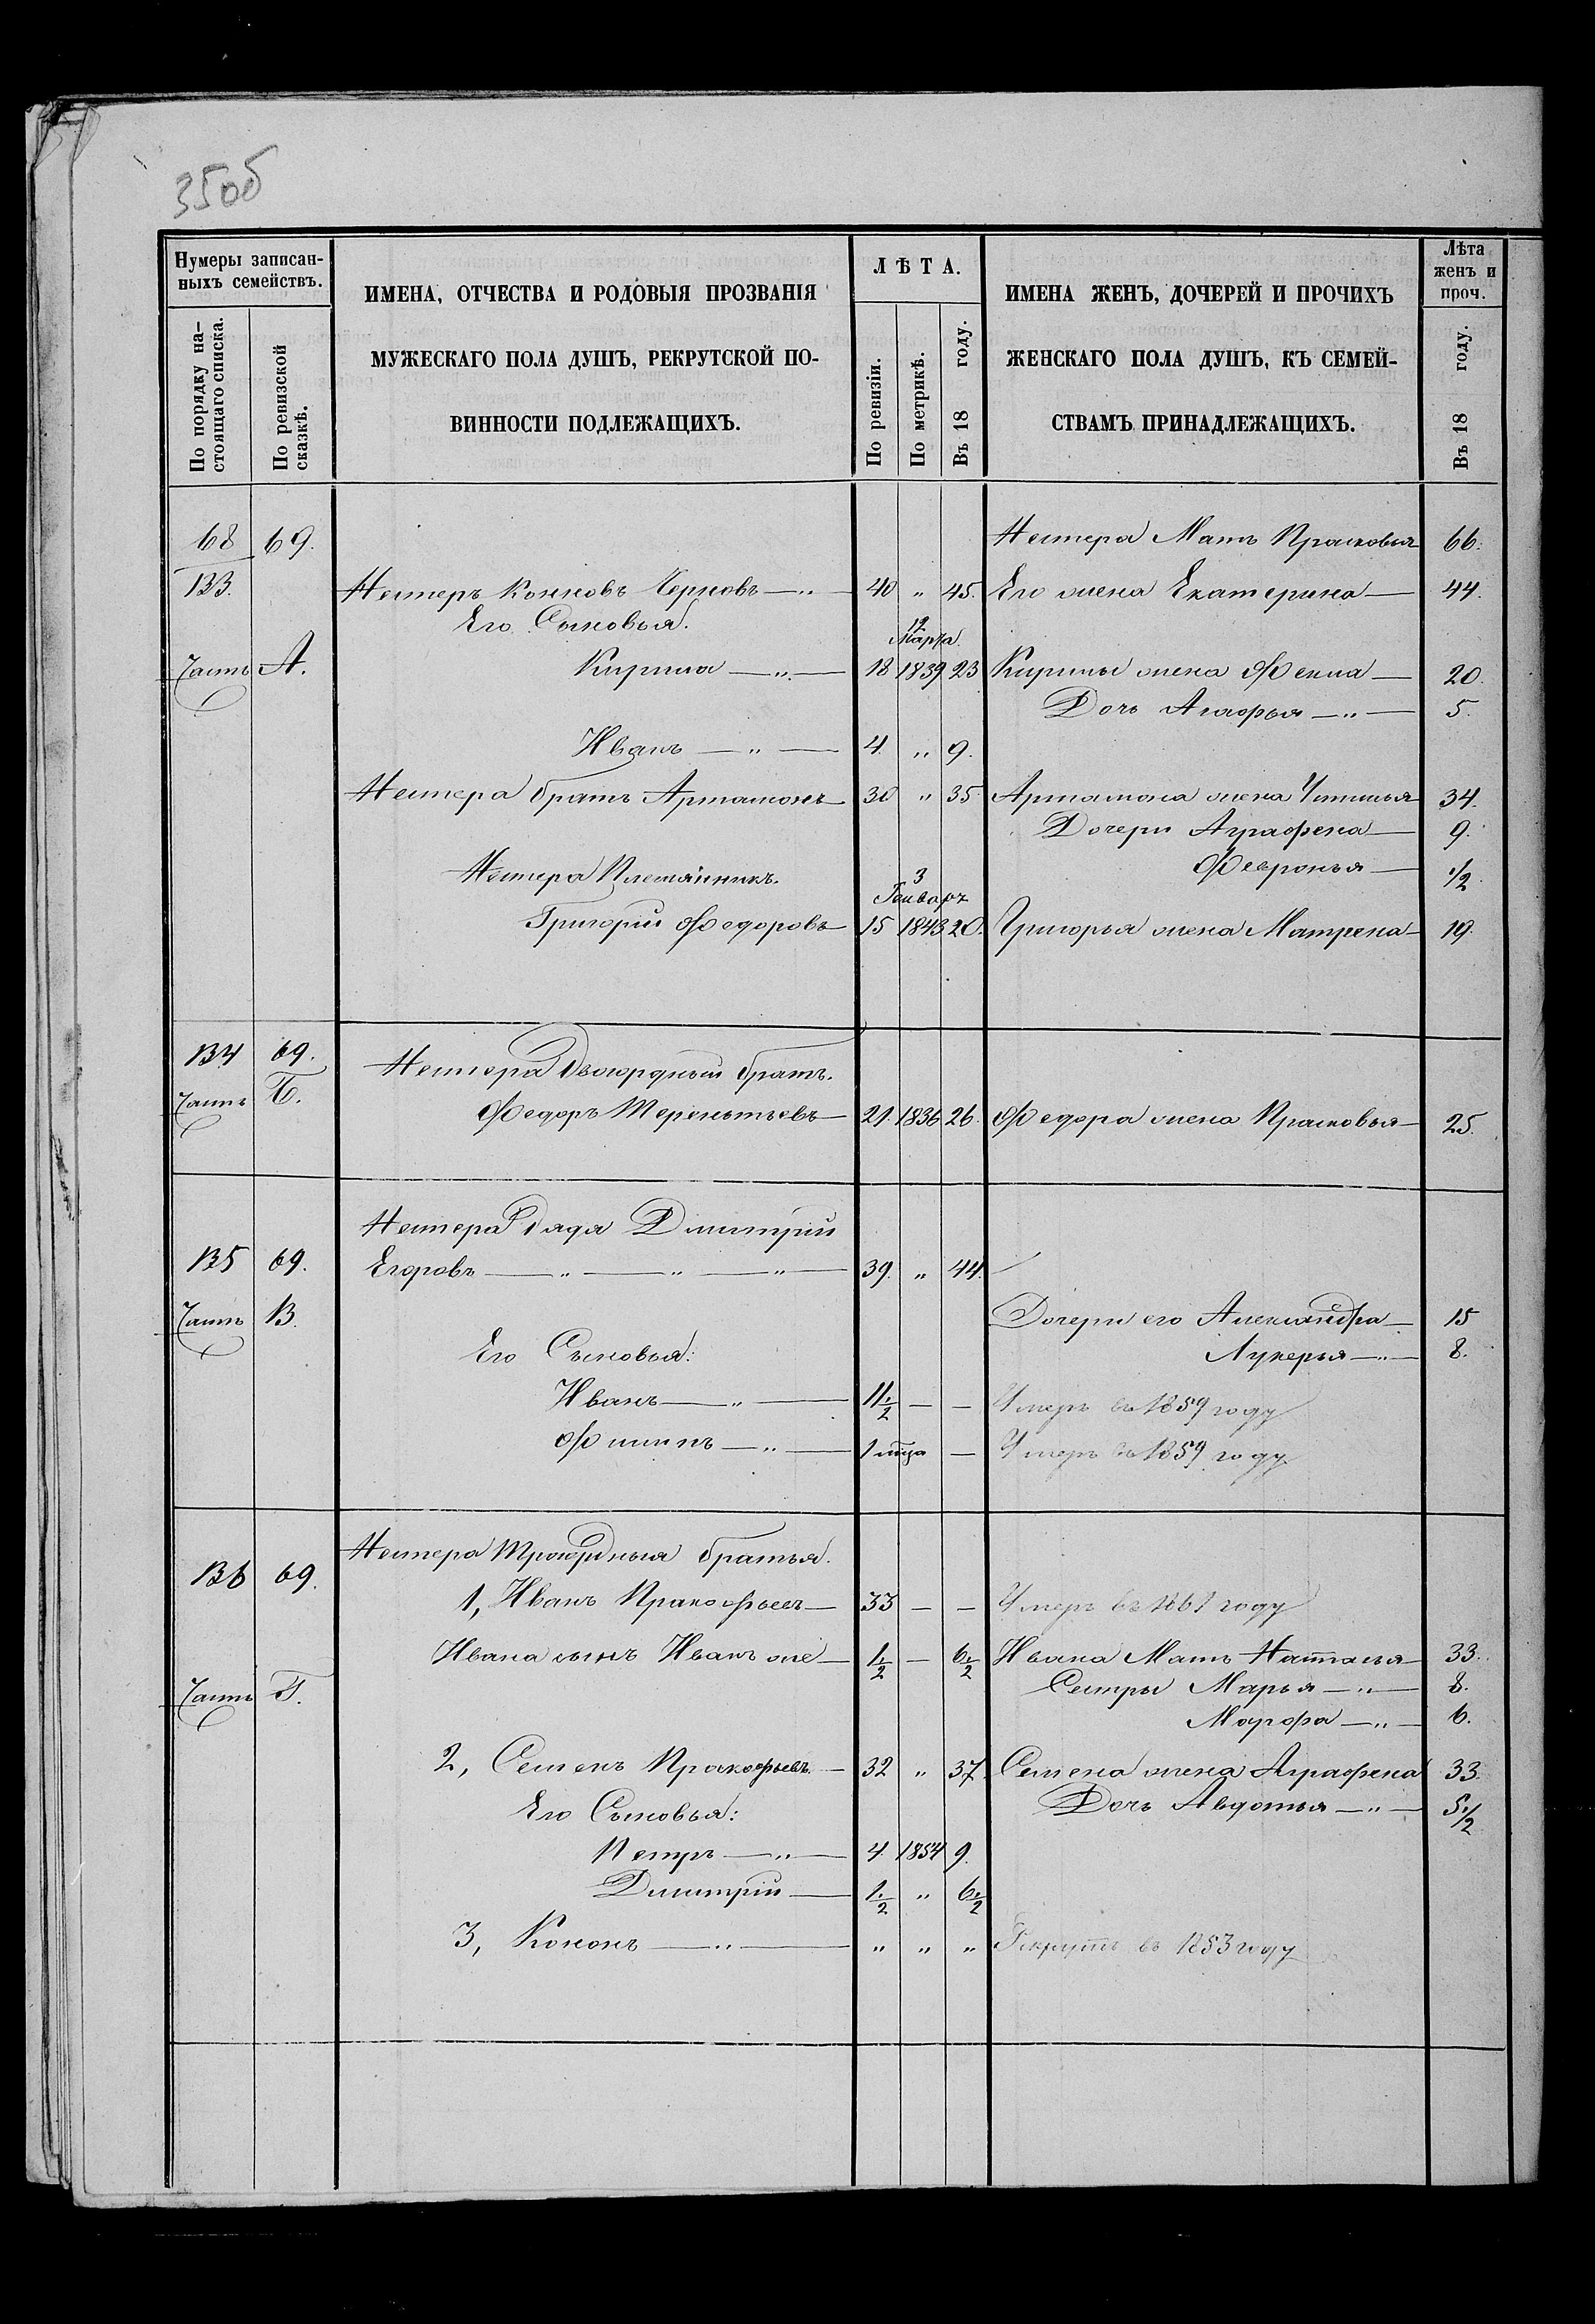 350б
Нумеры записан-
ныхъ семействъ.
По порядку на-
стоящаго списка.
По ревизской
сказкѣ.
ИМЕНА, ОТЧЕСТВА И РОДОВЫЯ ПРОЗВАНІЯ
МУЖЕСКАГО ПОЛА ДУШЪ, РЕКРУТСКОЙ ПО-
ВИННОСТИ ПОДЛЕЖАЩИХЪ.
ЛѢТА.
По ревизіи.
По метрикѣ.
Въ 18 году.
ИМЕНА ЖЕНЪ, ДОЧЕРЕЙ И ПРОЧИХЪ
ЖЕНСКАГО ПОЛА ДУШЪ, КЪ СЕМЕЙ-
СТВАМЪ ПРИНАДЛЕЖАЩИХЪ.
Лѣта
женъ и
проч.
Въ 18 году.
68 69. Нестера Мать Прасковья 66.
133. Нестеръ Черновъ — " — 40 " 45. Его жена Екатерина — 44.
Его Сыновья. 19 Марта
Часть А. Кирила — " — 18 1839 23 Кирилы жена Фекла — 20.
Дочь Агафья — " — 5.
Иванъ — " — 4. " 9.
Нестера братъ Артамонъ 30 " 35. Артамона жена Устинья 34.
Дочери Аграфена — 9.
Февронья — 1/2.
Нестера Племянникъ. 3 Генваря
Григорій Федоровъ — 15 1843 20. Григорья жена Матрена — 19.
134 69. Нестера двоюрдный братъ.
Часть Б. Федоръ Терентьевъ — 21. 1836 26. Федора жена Прасковья — 25.
Нестера дядя Дмитрій
135 69. Егоровъ — " — " — " — 39. " 44.
Часть В. Дочери его Александра — 15
Его Сыновья: Лукерья — " — 8.
Иванъ — " — 11 1/2 — — Умеръ въ 1859 году
Филипъ — " — 1 мца — Умеръ въ 1859 году
Нестера Троюрдныя братья.
136 69. 1, Иванъ Пракофьевъ — 33 — — Умеръ въ 1861 году
Ивана сынъ Иванъ же — 1 1/2 — 6 1/2 Ивана Мать Наталья 33.
Часть Г. Сестры Марья — " — 8.
Марфа — " — 6.
2, Семенъ Пракофьевъ — 32 " 37. Семена жена Аграфена 33.
Его Сыновья: Дочь Авдотья — " — 5 1/2
Петръ — " — 4. 1854 9.
Дмитрій — 1 1/2 " 6 1/2
3, Кононъ — " — " " " Рекрутъ въ 1853 году